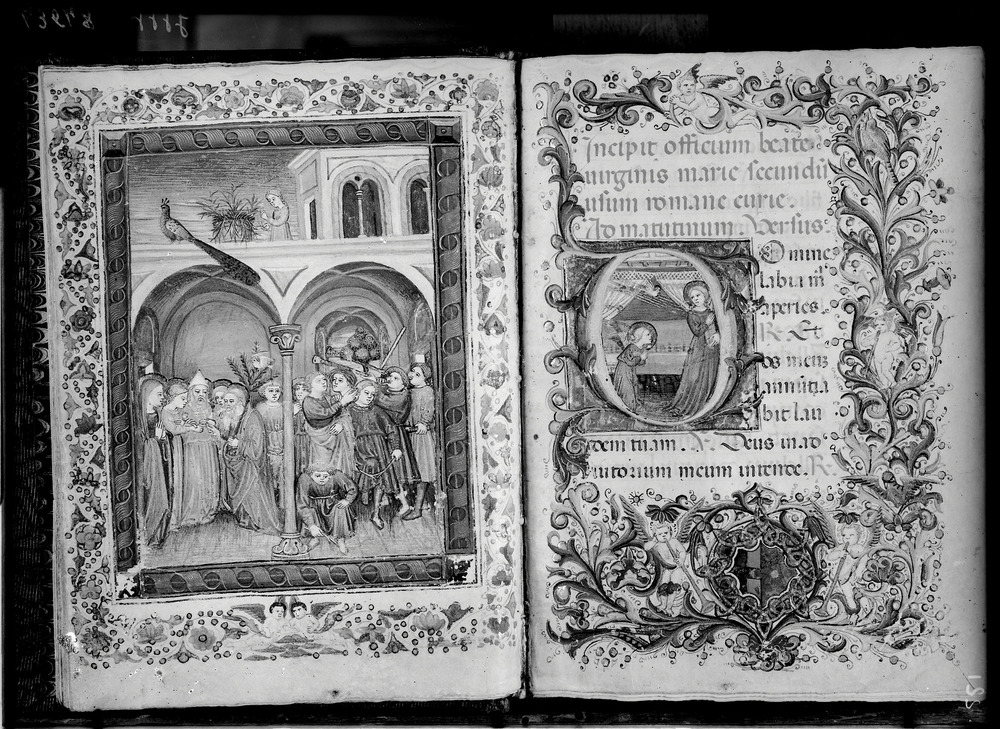 Incipit officium beate
virginis marie secundū
usum romane curie.
Ad matutinum. Versus.
Domine
labia m̄
aperies.
R. Et
os meū
annūtia
bit lau
dem tuam. V. Deus in ad
iutorium meum intende. R.